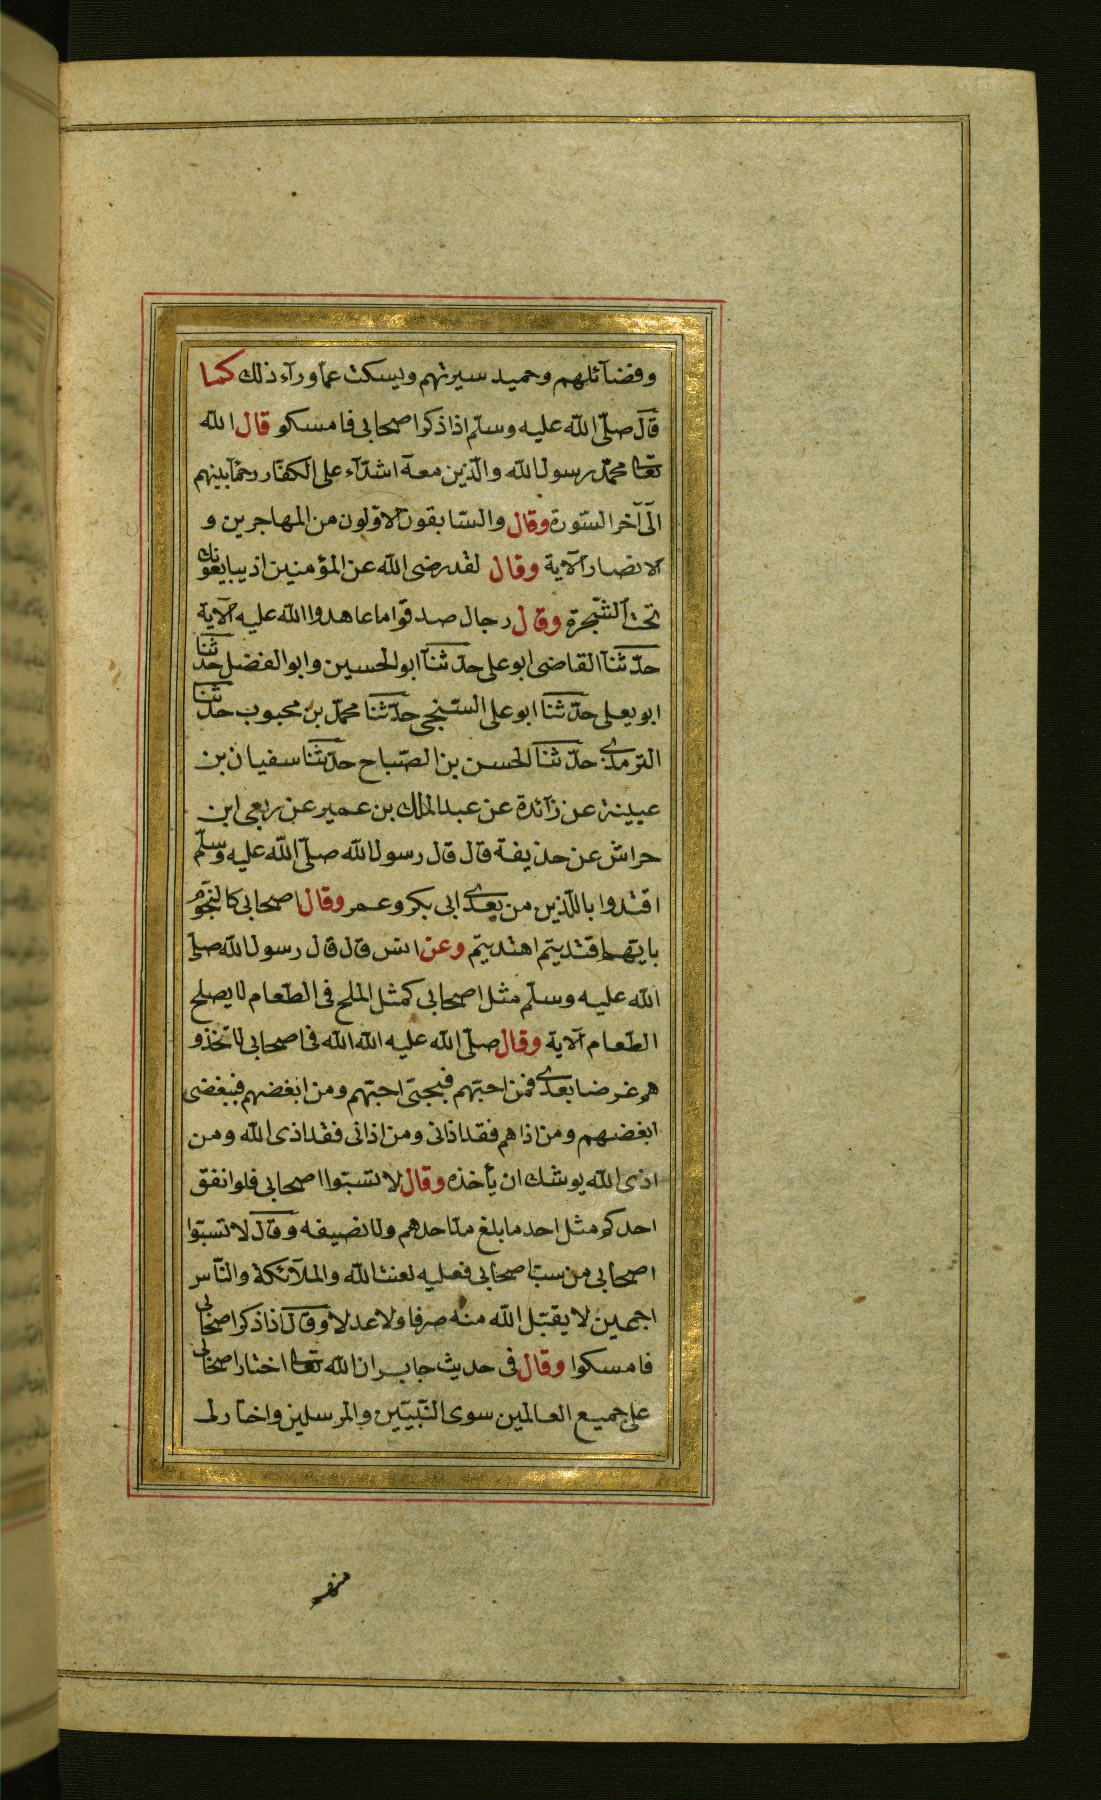 وفضآئلهم وحميد سيرتهم ويسكت عمّا ورآء ذلك كما
قال صلّى الله عليه وسلّم اذا ذكر اصحابى فامسكو قال الله
تعا محمّد رسول الله والّذين معه اشدّآء على الكفّار رحمآ بينهم
الى آخر السّورة وقال والسّابقون الاوّلون من المهاجرين و
الانصار الآية وقال لقد رضى الله عن المؤمنين اذ يبايعونك
تحت الشّجرة وقال رجال صدقوا ما عاهدوا الله عليه الآية
حدّثنا القاضى ابو على حدّثنا ابو الحسين وابو الفضل حدّثنا
ابو يعلى حدّثنا ابو على السّنجى حدّثنا محمّد بن محبوب حدّثنا
الترمذى حدّثنا الحسن بن الصّباح حدّثنا سفيان بن
عيينة عن زآئدة عن عبد الملك بن عمير عن ربعى ابن
حراش عن حذيفة قال قال رسول الله صلّى الله عليه وسلّم
اقتدوا بالّذين من بعدى ابى بكر وعمر وقال اصحابى كالنّجوم
بايّهم اقتديتم اهتديتم وعن انس قال قال رسول الله صلّى
الله عليه وسلّم مثل اصحابى كمثل الملح فى الطّعام لا يصلح
الطّعام الآية وقال صلّى الله عليه الله الله فى اصحابى لا تتّخذو
هم غرضا بعدى فمن احبّهم فبحبّى احبّهم ومن ابغضهم فببغضى
ابغضهم ومن اذاهم فقد اذانى ومن اذانى فقد اذى الله ومن
اذى الله يوشك ان يأخذه وقال لا تسبّوا اصحابى فلو انفق
احدكم مثل احد ما بلغ مدّ احدهم ولا نصيفه وقال لا تسبّوا
اصحابى من سبّ اصحابى فعليه لعنت الله والملآئكة والنّاس
اجمعين لا يقبّل الله منه صرفا ولا عدلا وقال اذا ذكر اصحابى
فامسكوا وقال فى حديث جابر ان الله تعا اختار اصحابى
على جميع العالمين سوى النّبيّين والمرسلين واختار لى
منهم